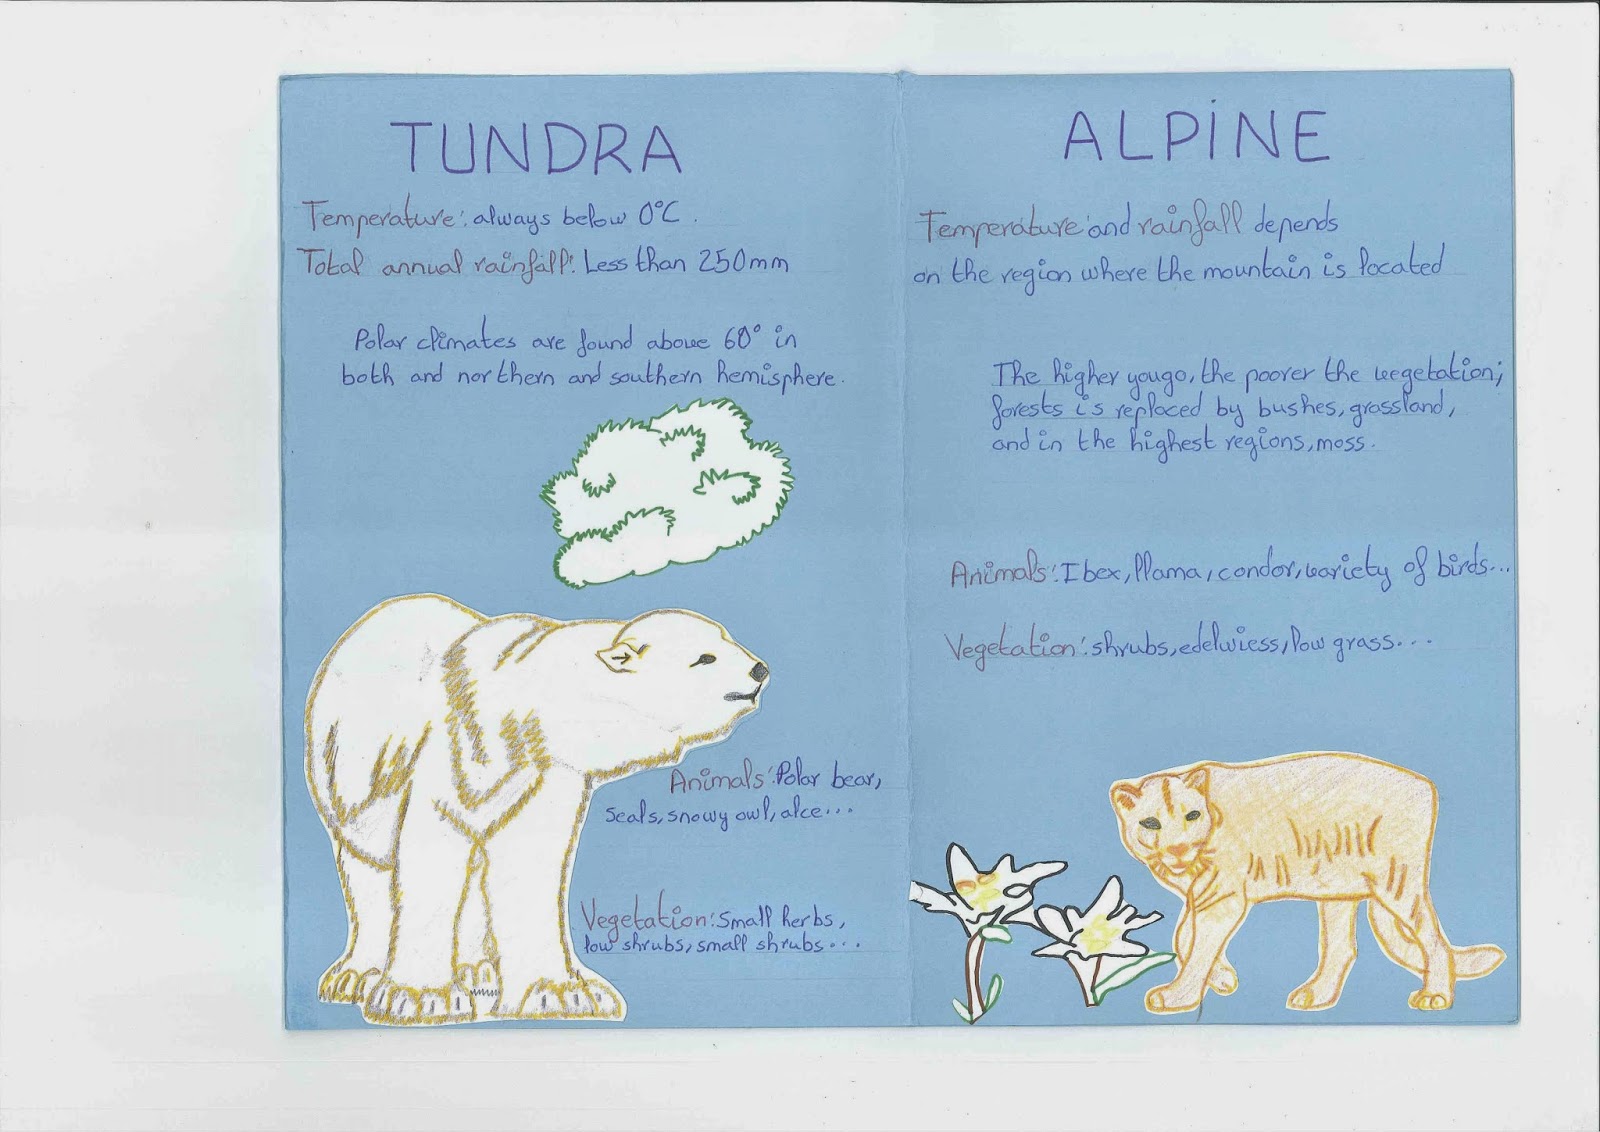 TUNDRA
Temperature: always below 0°C.
Total annual rainfall: Less than 250mm
Polar climates are found above 60° in
both and northern and southern hemisphere.
Animals: Polar bear,
seals, snowy owl, alce...
Vegetation: Small herbs,
low shrubs, small shrubs...
ALPINE
Temperature and rainfall depends
on the region where the mountain is located
The higher yougo, the poorer the vegetation;
forests is replaced by bushes, grassland,
and in the highest regions, moss.
Animals: Ibex, llama, condor, variety of birds...
Vegetation: shrubs, edelwiess, low grass...